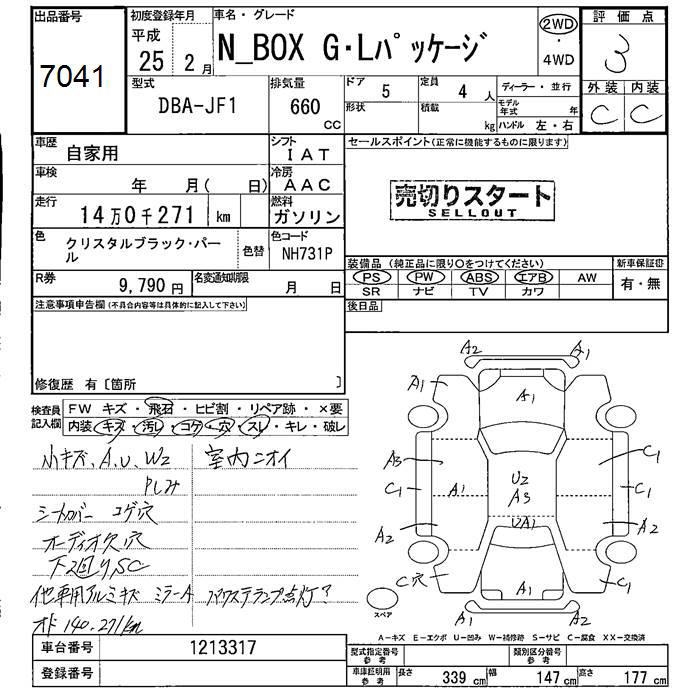 出品番号
7041
初度登録年月
平成
25 2 月
車名・グレード
N_BOX G・Lパッケージ
2WD
・
4WD
評価点
3
外装 内装
C C
型式
DBA-JF1
排気量
660
CC
ドア 5
形状
定員 4 人
積載 kg
ディーラー・並行
モデル年式 年
ハンドル 左・右
車歴
自家用
シフト
IAT
車検
年 月( 日)
冷房
AAC
走行
14万0千271 km
燃料
ガソリン
色
クリスタルブラック・パール
色替
色コード
NH731P
R券
9,790 円
名変通知期限
月 日
セールスポイント(正常に機能するものに限ります)
売切りスタート
SELLOUT
装備品 (純正品に限り○をつけてください)
PS PW ABS エアB AW
SR ナビ TV カワ
新車保証書
有・無
後日品
注意事項申告欄(不具合内容等は具体的に記入して下さい)
修復歴 有〔箇所 〕
検査員記入欄
FW キズ・飛石・ヒビ割・リペア跡・×要
内装・キズ・汚レ・コゲ・穴・スレ・キレ・破レ
小キズ、A、U、W2
室内ニオイ
シートカバー コゲ穴
オーディオ欠 穴
下2回りSC
他車用アルミキズ ミラーA
パワステランプ点灯?
オド 140,271km
A2 A1
A1 A1
A3 C1
C1 A1 U2 C1
A3
A2 UA1 A2
C穴 A1 C1
A1 A2
スペア
A-キズ E-エクボ U-凹み W-補修跡 S-サビ C-腐食 XX-交換済
車台番号
1213317
登録番号
型式指定番号
参考
類別区分番号
参考
車庫証明用
参考
長さ 339 cm 幅 147 cm 高さ 177 cm